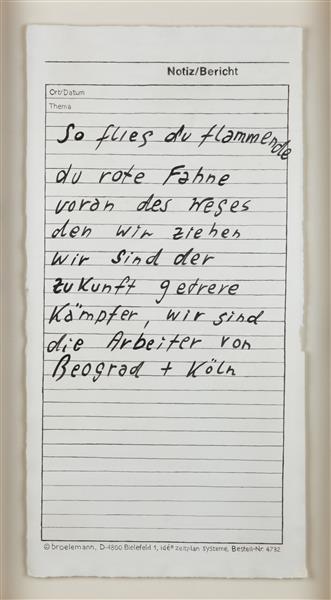 Notiz/Bericht
Ort/Datum
Thema
So flieg du flammende
du rote Fahne
voran des Weges
den wir ziehen
wir sind der
zukunft getreue
Kämpfer, wir sind
die Arbeiter von
Beograd + Köln
© broelemann, D-4800 Bielefeld 1, idé® zeitplan systeme, Bestell-Nr. 4732